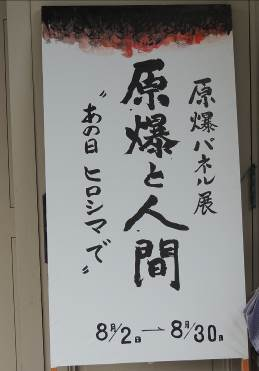 原爆パネル展
原爆と人間
〝あの日 ヒロシマで〟
8月/2日 — 8月/30日